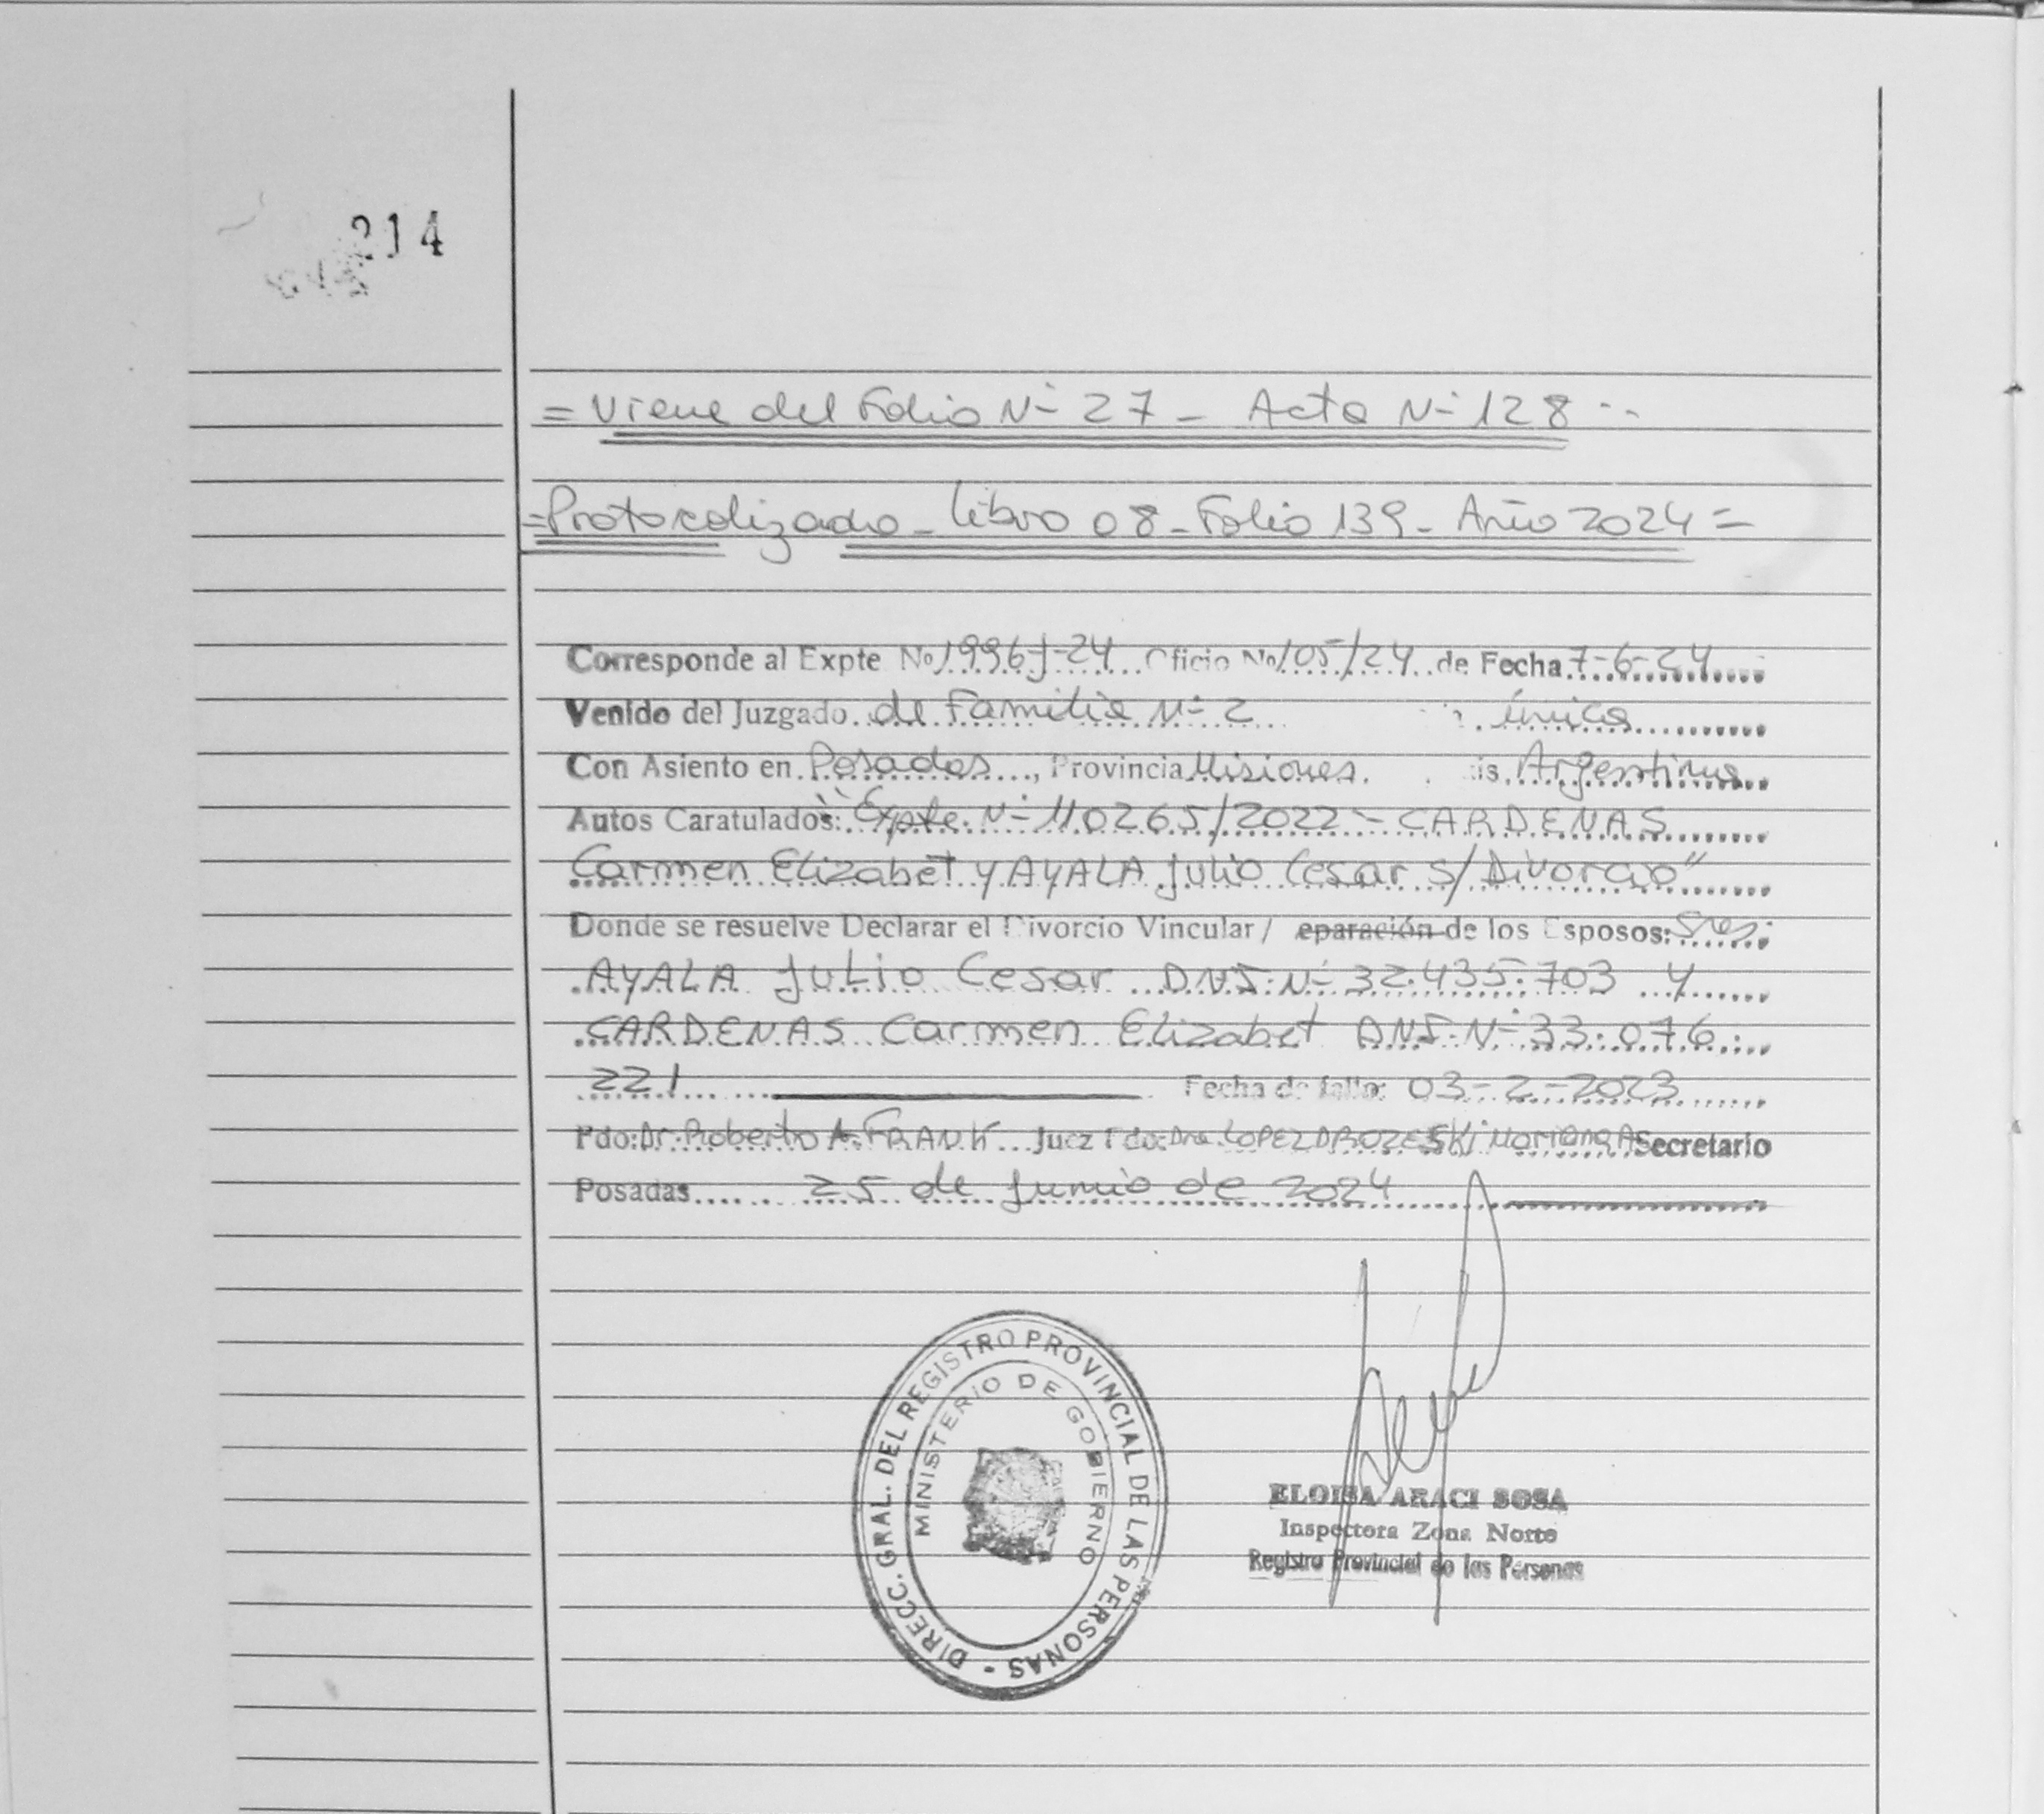 214
= Viene del Folio Nº 27 - Acta Nº 128 --
= Protocolizado - Libro 08 - Folio 139 - Año 2024 =
Corresponde al Expte Nº 1996-J-24 Oficio Nº 105/24 de Fecha 7-6-24
Venido del Juzgado de Familia Nº 2 única
Con Asiento en Posadas, Provincia Misiones. Argentina
Autos Caratulados: "Expte. Nº 110265/2022 - CARDENAS
Carmen Elizabet y AYALA Julio Cesar s/ Divorcio"
Donde se resuelve Declarar el Divorcio Vincular / eparación de los Esposos: Sres.
AYALA Julio Cesar DNI. Nº 32.435.703 y
CARDENAS Carmen Elizabet DNI. Nº 33.076.
221 Fecha de fallo: 03-2-2023
Fdo: Dr. Roberto A. FRANK Juez Fdo: Dra. LOPEZ DROZESKI Mariana A Secretario
Posadas 25 de Junio de 2024
DIRECC. GRAL. DEL REGISTRO PROVINCIAL DE LAS PERSONAS -
MINISTERIO DE GOBIERNO
ELOISA ARACI SOSA
Inspectora Zona Norte
Registro Provincial de las Personas